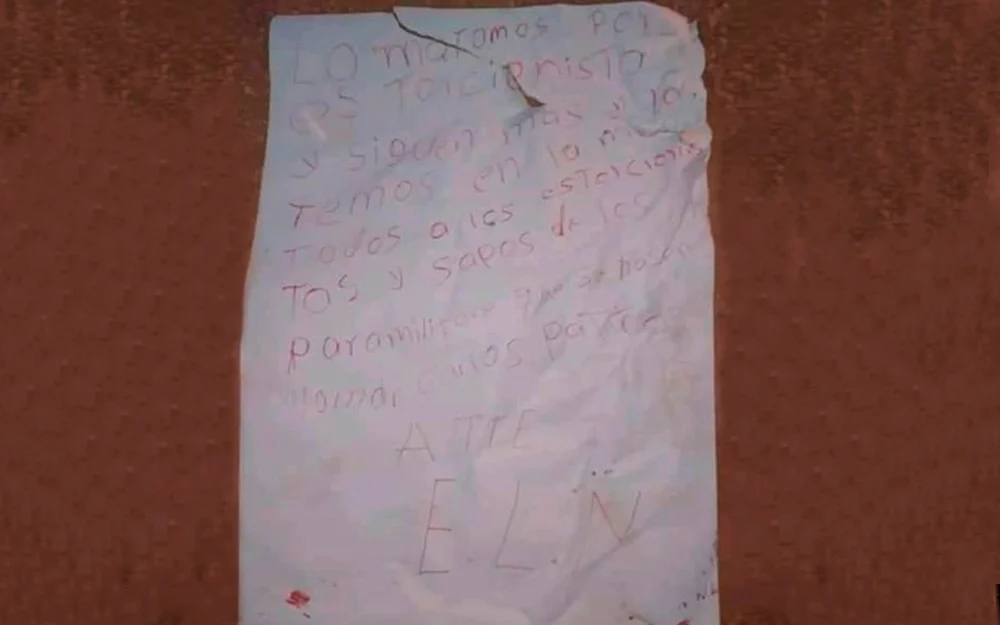 LO matomos POR
es Torcionista
y siguen mas y la
Temos en la
Todos a los esTorcionis
Tos y sapos de los
paramilitare que se hasen
llamar los patre
ATTE
E.L.N